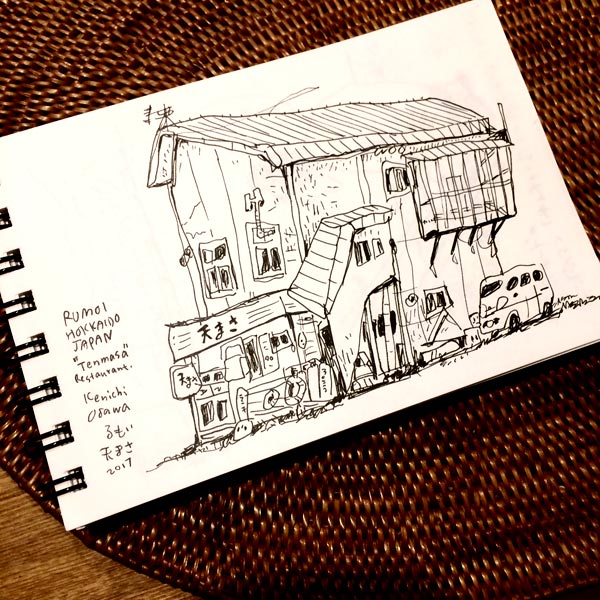 RUMOI
HOKKAIDO
JAPAN
"Tenmasa"
Restaurant.
Kenichi
Osawa
るもい
天まさ
2017
天まさ
天まさ